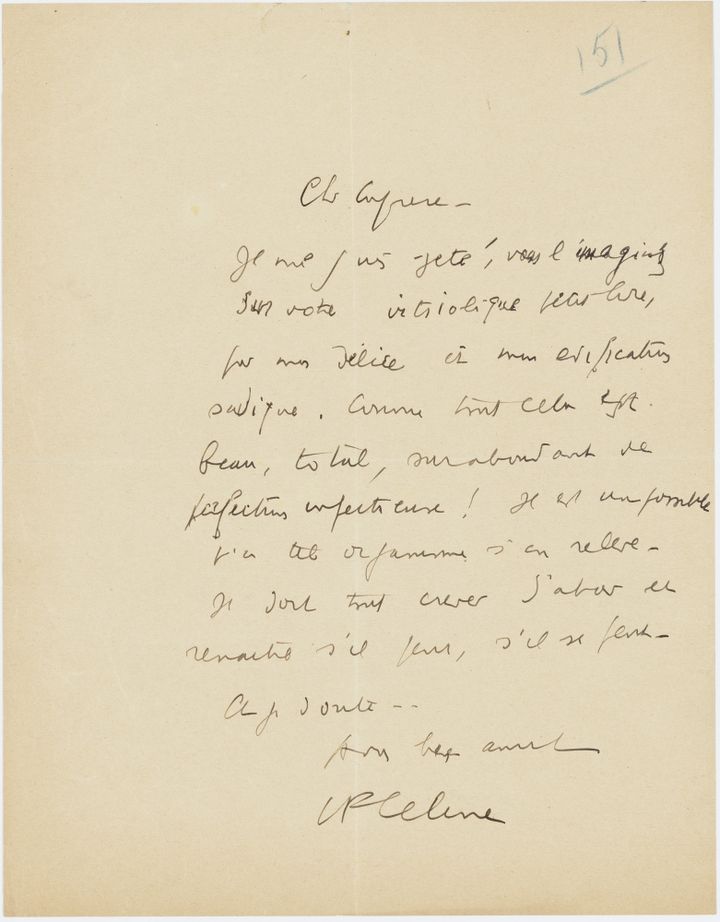 151
Cher Confrère –
Je me suis jeté, vous l'imaginez
sur votre vitriolique petit livre,
pour mon délice et mon édification
sadique. Comme tout cela est
beau, total, surabondant de
perfection infectieuse ! Il est impossible
qu'un tel organisme s'en relève –
Il doit tout crever d'abord et
renaître s'il peut, s'il se peut –
Et je doute --
à vous bien amical
LF Celine